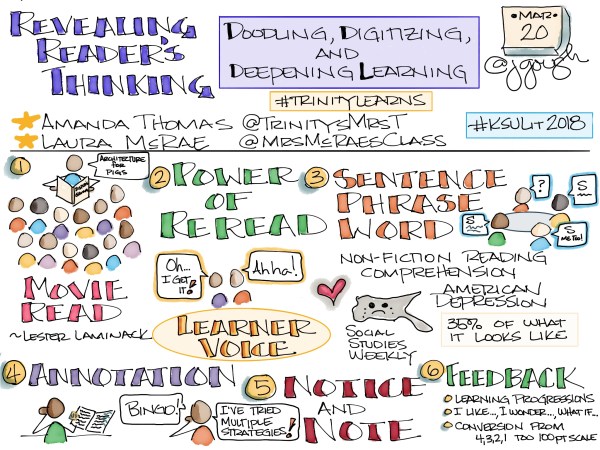 REVEALING
READER'S
THINKING
DOODLING, DIGITIZING,
AND
DEEPENING LEARNING
MAR.
20
@jgough
#TRINITYLEARNS
AMANDA THOMAS @TRINITYSMRST
LAURA MCRAE @MRSMCRAESCLASS
#KSULIT2018
1
ARCHITECTURE
FOR
PIGS
MOVIE
READ
~LESTER LAMINACK
2 POWER
OF
REREAD
Oh...
I GET
IT!
Ahha!
LEARNER
VOICE
3 SENTENCE
PHRASE
WORD
?
S
S
S
ME TOO!
NON-FICTION READING
COMPREHENSION
AMERICAN
DEPRESSION
SOCIAL
STUDIES
WEEKLY
35% OF WHAT
IT LOOKS LIKE
4 ANNOTATION
BINGO!
5 NOTICE
AND
NOTE
I'VE TRIED
MULTIPLE
STRATEGIES!
6 FEEDBACK
LEARNING PROGRESSIONS
I LIKE..., I WONDER..., WHAT IF...
CONVERSION FROM
4,3,2,1 TOO 100PT SCALE